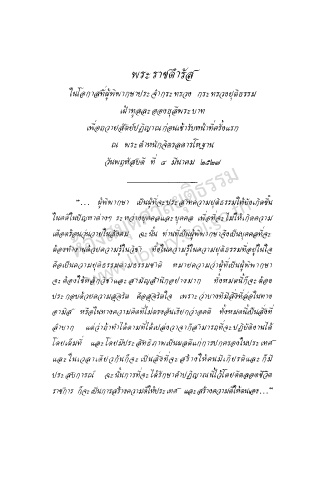 พระราชดำรัส
ในโอกาสที่ผู้พิพากษาประจำกระทรวง กระทรวงยุติธรรม
เฝ้าทูลละอองธุลีพระบาท
เพื่อถวายสัตย์ปฏิญาณก่อนเข้ารับหน้าที่ครั้งแรก
ณ พระตำหนักจิตรลดารโหฐาน
วันพฤหัสบดี ที่ ๘ มีนาคม ๒๕๒๗
"... ผู้พิพากษา เป็นผู้ที่จะประสาทความยุติธรรมให้บังเกิดขึ้น
ในคดีในปัญหาต่างๆ ระหว่างบุคคลและบุคคล เพื่อที่จะไม่ให้เกิดความ
เดือดร้อนวุ่นวายในสังคม ฉะนั้น ท่านที่เป็นผู้พิพากษาจึงเป็นบุคคลที่จะ
ต้องทำงานด้วยความรู้ในวิชา ทั้งในความรู้ในความยุติธรรมที่อยู่ในใจ
คือเป็นความยุติธรรมตามธรรมชาติ หมายความว่าผู้ที่เป็นผู้พิพากษา
จะต้องใช้หลักวิชาและสามัญสำนึกอย่างมาก ทั้งหมดนี้ก็จะต้อง
ประกอบด้วยความสุจริต คือสุจริตใจ เพราะว่าบางทีมีสิ่งที่ล่อในทาง
อามิส หรือในทางความคิดที่ไม่ตรงอันเรียกว่าอคติ ทั้งหมดนี้เป็นสิ่งที่
ลำบาก แต่ว่าถ้าทำได้ตามที่ได้เปล่งวาจาก็สามารถที่จะปฏิบัติงานได้
โดยเต็มที่ และโดยมีประสิทธิภาพเป็นผลดีแก่การปกครองในประเทศ
และในเวลาเดียวกันก็จะเป็นสิ่งที่จะสร้างให้ตนมีเกียรติและก็มี
ประสบการณ์ ฉะนั้นการที่จะได้รักษาคำปฏิญาณนี้ไว้โดยตลอดชีวิต
ราชการ ก็จะเป็นการสร้างความดีให้ประเทศ และสร้างความดีให้ตนเอง..."